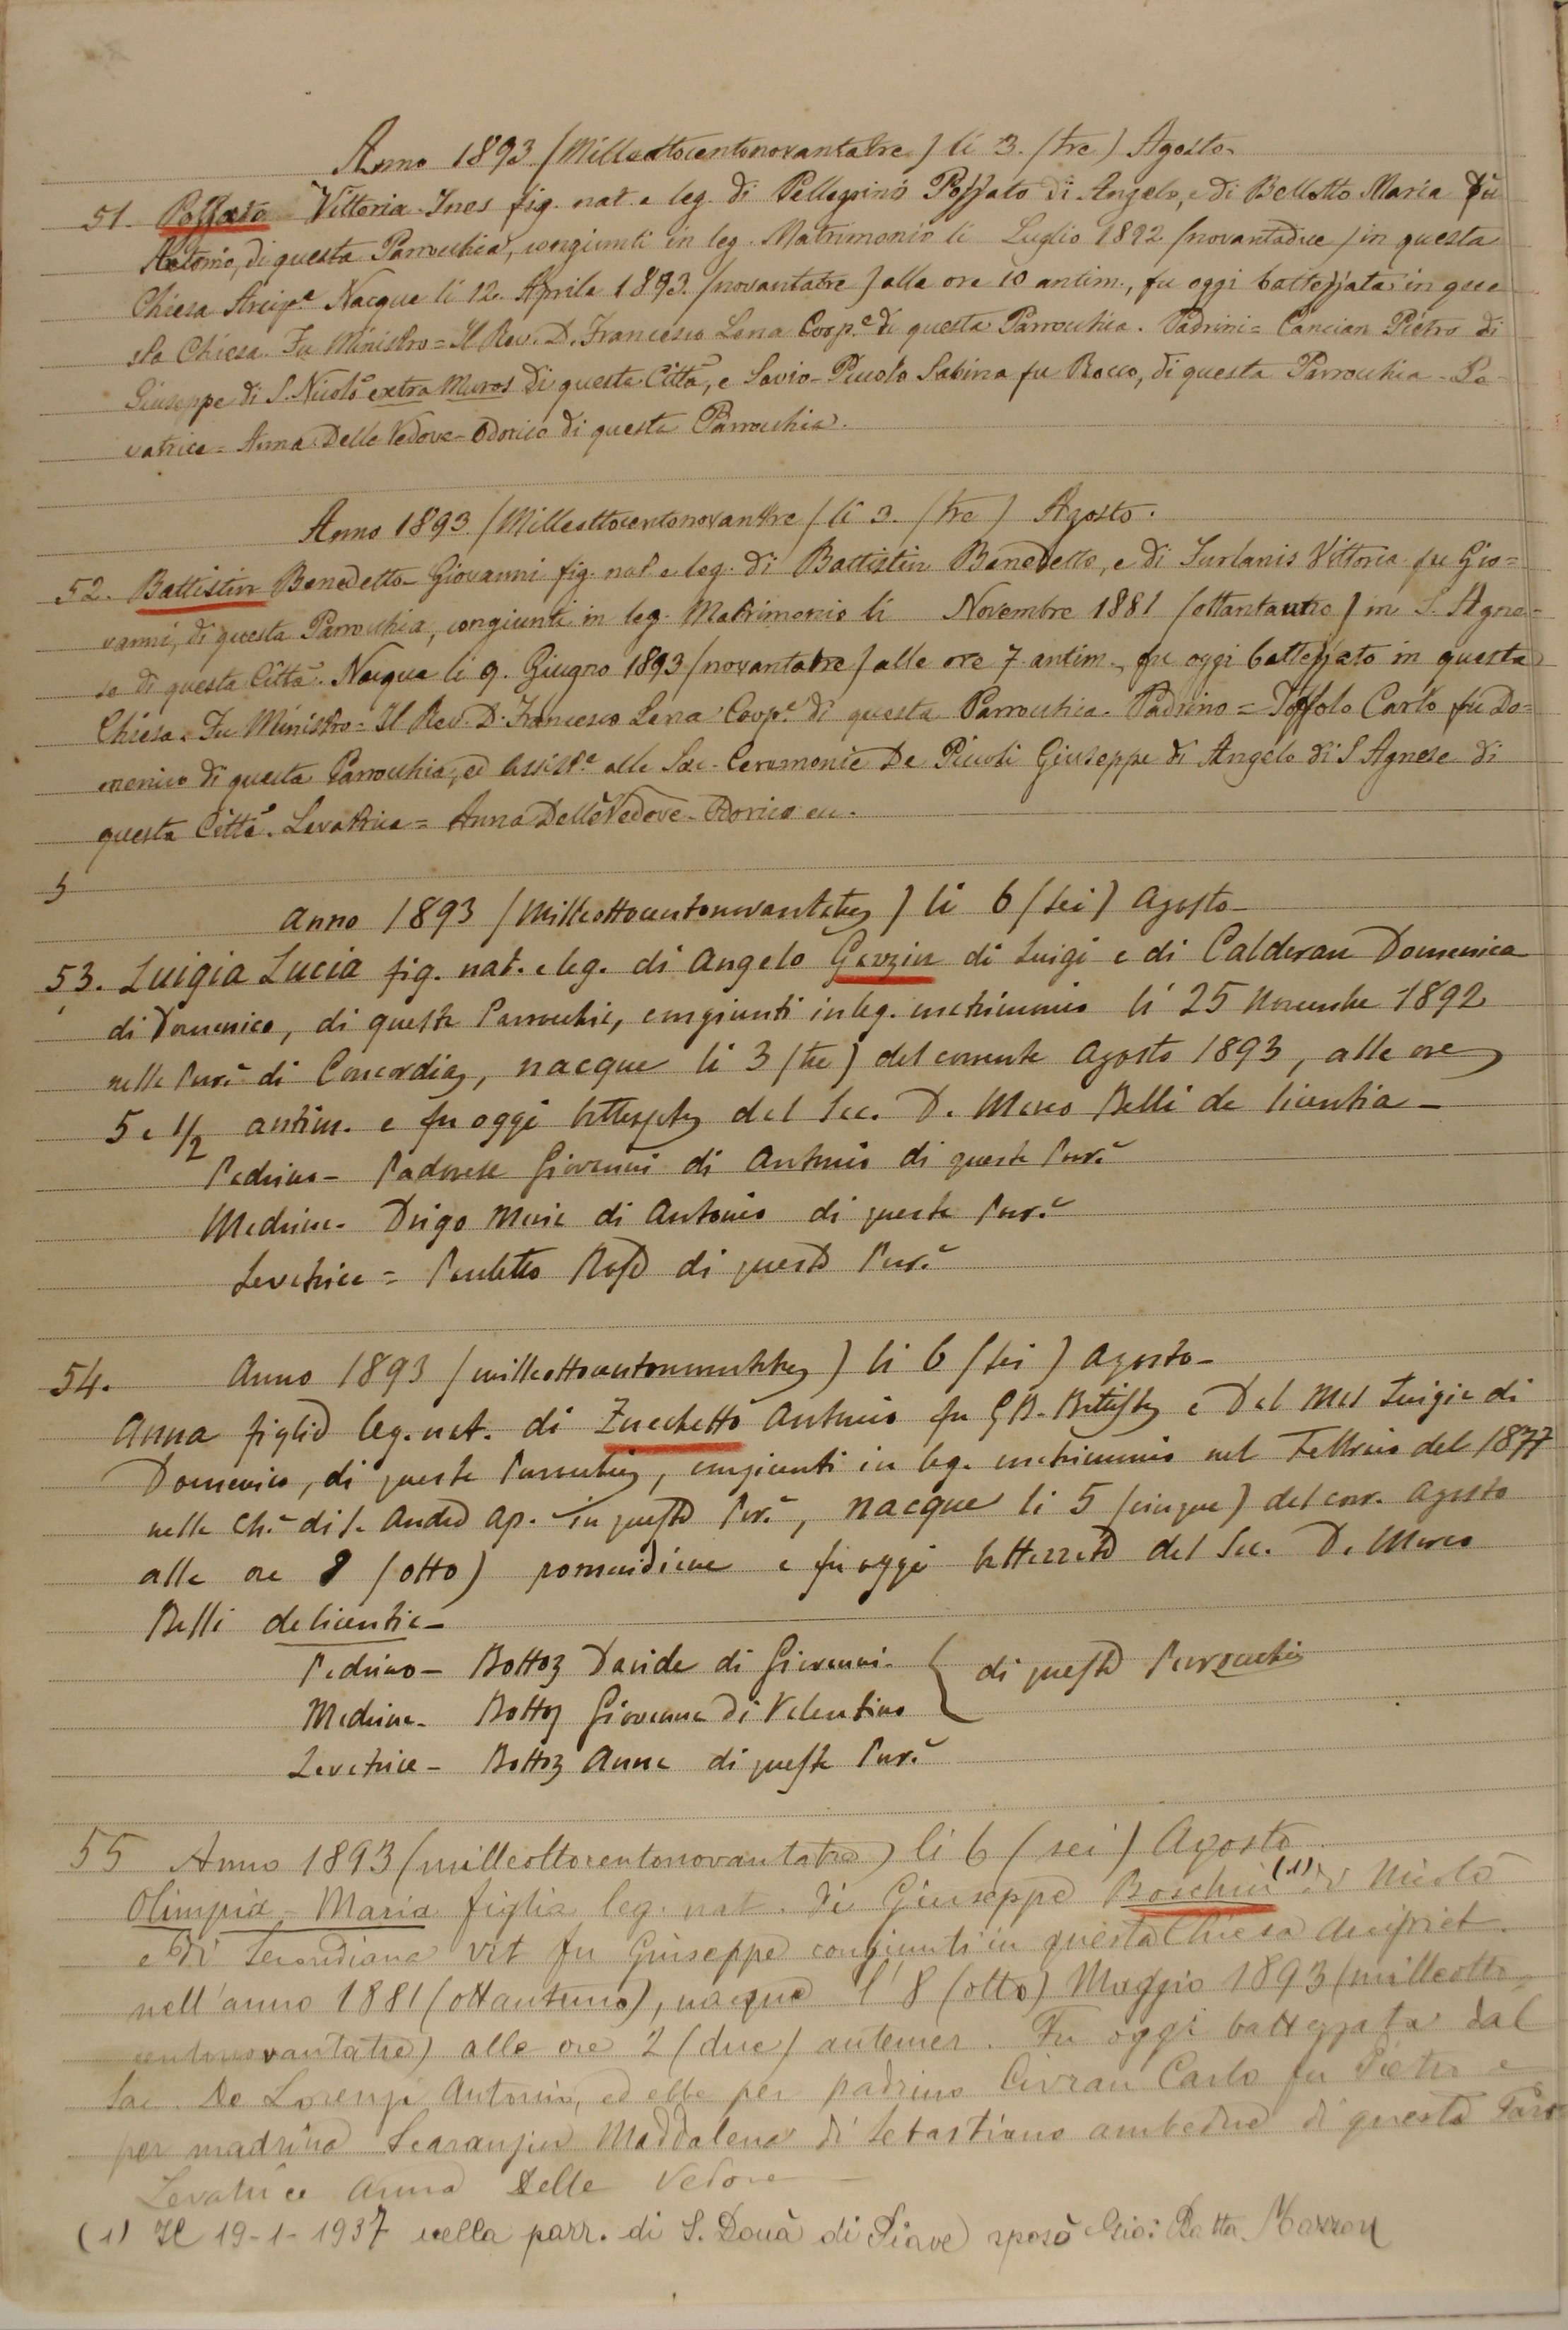 Anno 1893 (Milleottocentonovantatre) li 3. (tre) Agosto.
51. Poffato Vittoria-Ines fig. nat. e leg. di Pellegrino Poffato di Angelo, e di Bellotto Maria fu
Antonio, di questa Parrocchia, congiunti in leg. Matrimonio li Luglio 1892 (novantadue) in questa
Chiesa Arcip.e Nacque li 12. Aprile 1893. (novantatre) alle ore 10 antim., fu oggi battezzata in que
sta Chiesa. Fu Ministro = Il Rev. D. Francesco Lena Coop.e di questa Parrocchia. Padrini = Cancian Pietro di
Giuseppe di S. Nicolò extra Muros di questa Città, e Savio-Piccolo Sabina fu Rocco, di questa Parrocchia - Le
vatrice = Anna Delle Vedove-Odorico di questa Parrocchia.
Anno 1893 (Milleottocentonovantre) li 3. (tre) Agosto.
52. Battistin Benedetto-Giovanni fig. nat e leg. di Battistin Benedetto, e di Furlanis Vittoria fu Gio=
vanni, di questa Parrocchia, congiunti in leg. Matrimonio li Novembre 1881 (ottantauno) in S. Agne=
se di questa Città. Nacque li 9. Giugno 1893 (novantatre) alle ore 7. antim., fu oggi battezzato in questa
Chiesa. Fu Ministro = Il Rev. D. Francesco Lena Coop.e di questa Parrocchia. Padrino = Toffolo Carlo fu Do=
menico di questa Parrocchia, ed assist.e alle Sac. Ceremonie De Piccoli Giuseppe di Angelo di S. Agnese di
questa Città. Levatrice = Anna Delle Vedove-Odorico
Anno 1893 (Milleottocentonovantatre) li 6 (sei) Agosto-
53. Luigia Lucia fig. nat. e leg. di Angelo Gerzin di Luigi e di Calderan Domenica
di Domenico, di questa Parrocchia, congiunti in leg. matrimonio li 25 Novembre 1892
nella Parr.a di Concordia, nacque li 3 (tre) del corrente Agosto 1893, alle ore
5 e 1/2 antim. e fu oggi battezzata dal Sac. D. Marco Belli de licentia-
Padrino- Padovese Giovanni di Antonio di questa Parr.a
Madrina- Drigo Maria di Antonio di questa Parr.a
Levatrice = Pauletto Rosa di questa Parr.a
54. Anno 1893 (milleottocentonovantatre) li 6 (sei) Agosto-
Anna figlia leg. nat. di Zucchetto Antonio fu G.B. Battista e Dal Mas Luigia di
Domenico, di questa Parrocchia, congiunti in leg. matrimonio nel Febbraio del 1877
nella Ch.a di S. Andrea Ap. in questa Par.a, nacque li 5 (cinque) del corr. Agosto
alle ore 8 (otto) pomeridiane e fu oggi battezzata dal Sac. D. Marco
Belli de licentia-
Padrino- Bottos Davide di Giovanni.
Madrina- Bottos Giovanna di Valentino { di questa Parrocchia
Levatrice- Bottos Anna di questa Parr.a
55 Anno 1893 (milleottocentonovantatre) li 6 (sei) Agosto
Olimpia-Maria figlia leg. nat. di Giuseppe Boschin (1) di Nicolò
e di Secondiana Vit fu Giuseppe congiunti in questa Chiesa Arcipret.
nell'anno 1881 (ottantuno), nacque l'8 (otto) Maggio 1893 (milleotto
centonovantatre) alle ore 2 (due) antemer. Fu oggi battezzata dal
Sac. De Lorenzi Antonio, ed ebbe per padrino Civran Carlo fu Pietro e
per madrina Scaranzin Maddalena di Sebastiano ambedue di questa Parr
Levatrice Anna Delle Vedove
(1) Il 19-1-1937 nella parr. di S. Donà di Piave sposò Gio: Batta.